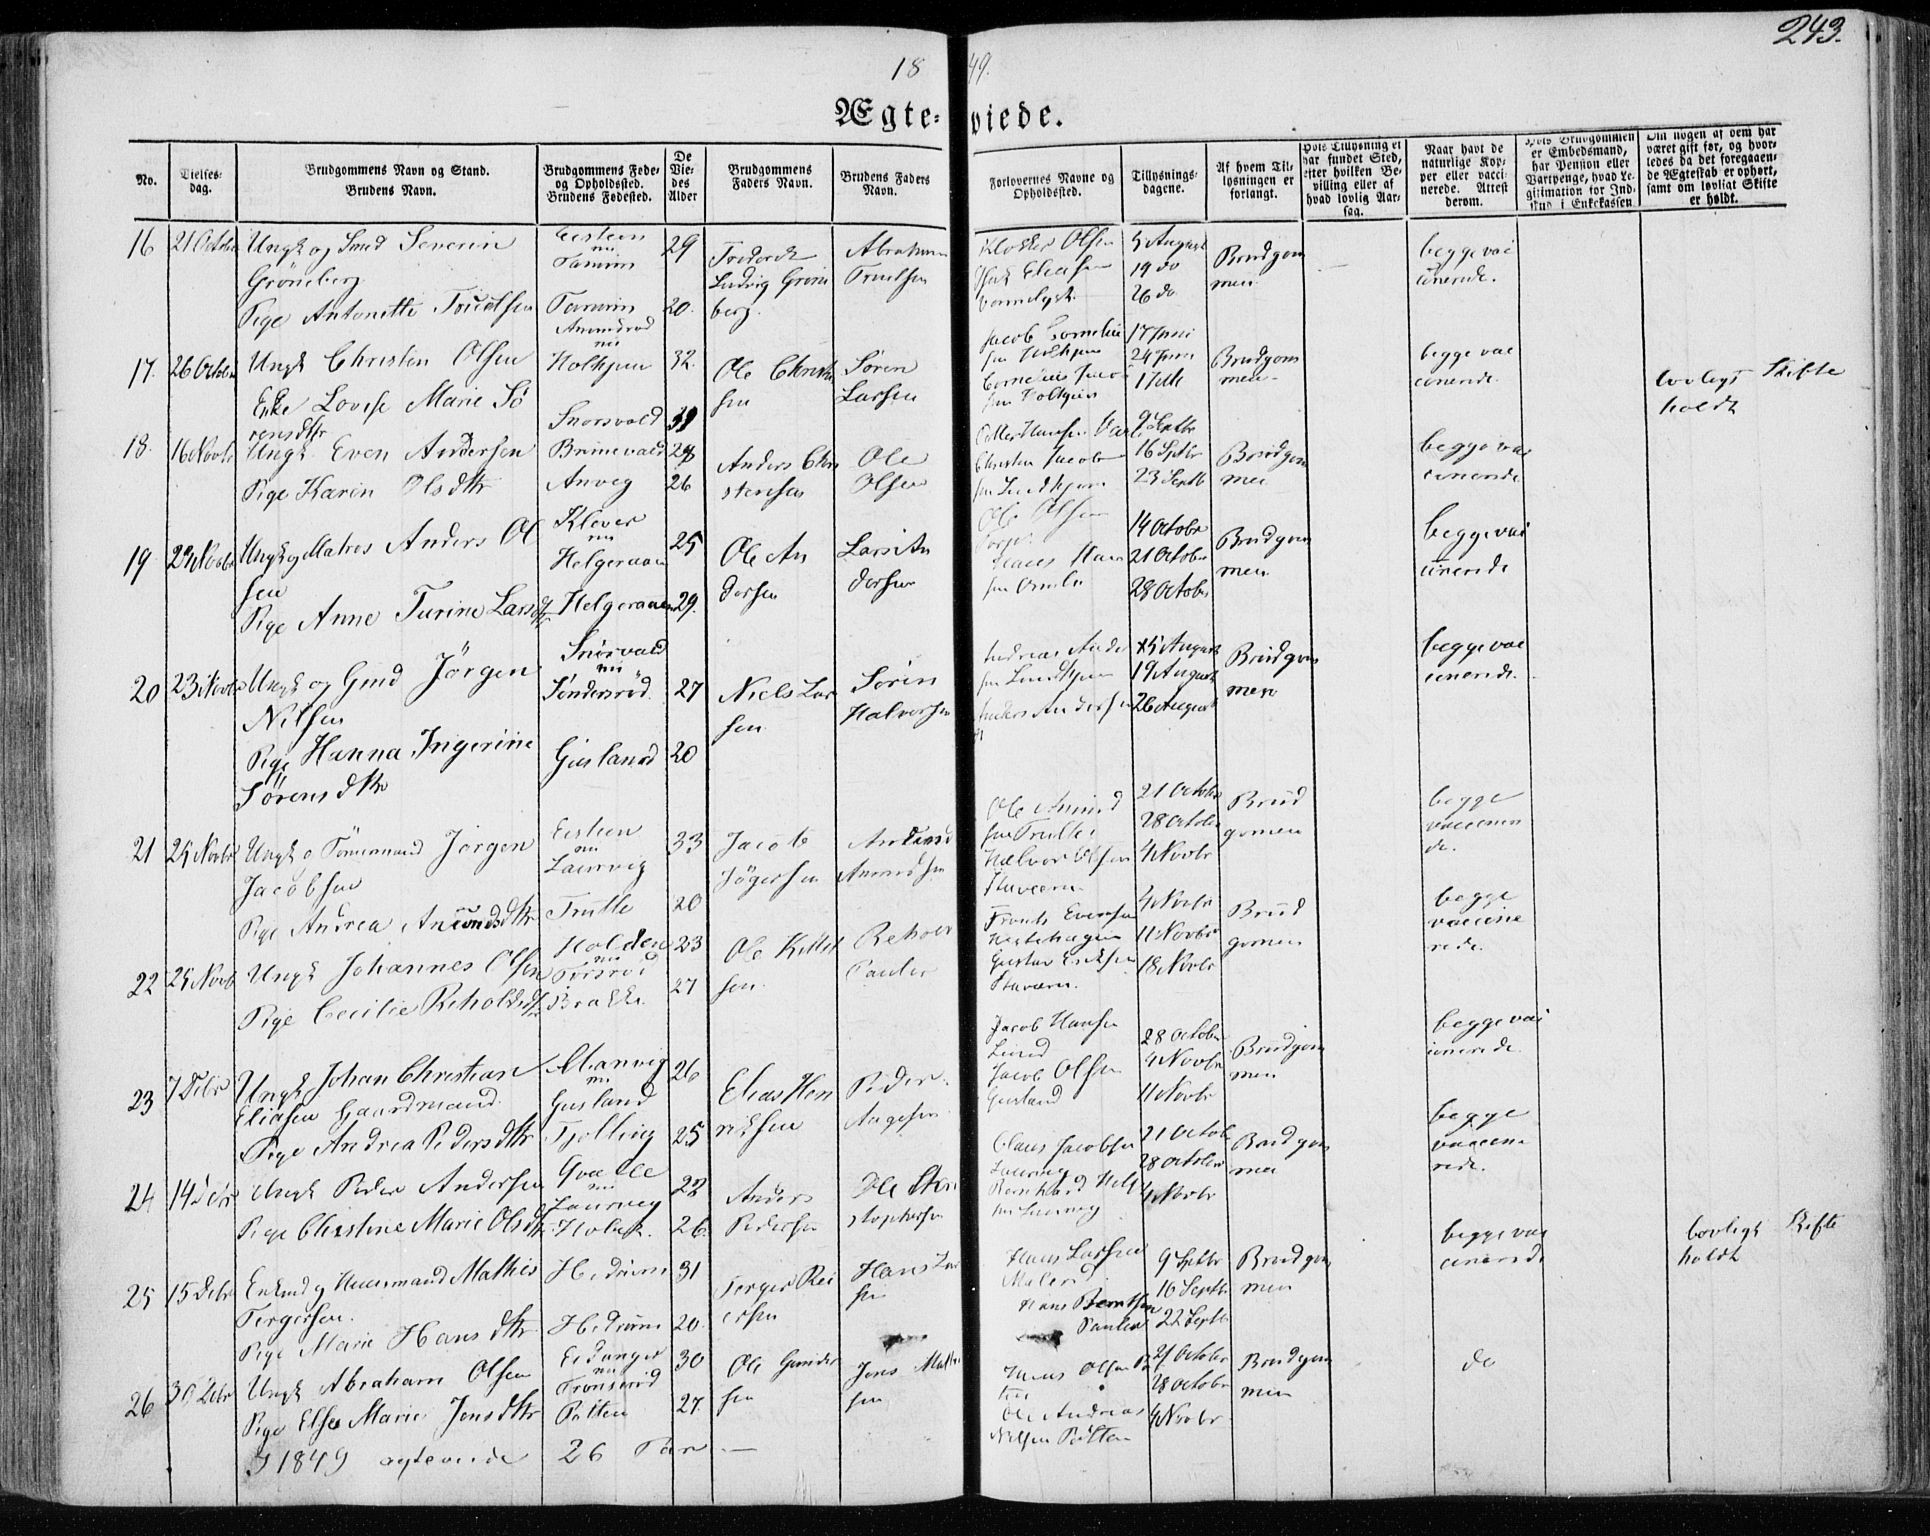 243.
18 49.
Ægte- viede.
No.
Vielses-
dag.
Brudgommens Navn og Stand.
Brudens Navn.
Brudgommens Føde-
og Opholdssted.
Brudens Fødested.
De
Vie-
des
Alder
Brudgommens
Faders Navn.
Brudens Faders
Navn.
Forlovernes Navne og
Opholdssted.
Tillysnings-
dagene.
Af hvem Til-
lysningen er
forlangt.
Hvis Tillysning ei
har fundet Sted,
efter hvilken Be-
villing eller af
hvad lovlig Aar-
sag.
Naar havt de
naturlige Kop-
per eller vacci-
nerede. Attest
derom.
Hvis Brudgommen
er Embedsmand,
har Pension eller
Vartpenge, hvad Le-
gitimation for Ind-
skud i Enkekassen
Om nogen af dem har
været gift før, og hvor-
ledes da det foregaaen-
de Ægteskab er ophørt,
samt om lovligt Skifte
er holdt.
16 21 October Ungk og Smed Severin
Grøneberg
Pige Antonette Truelsen
nu
29
20.
Frederik
Ludvig Grøne
berg.
Abraham
Truelsen
Klokker Olsen
5 August
19 do
26 do
Brudgom
men
begge vac
cinerede.
17. 26 October Ungk Christen Olsen
Enke Lovise Marie Sø
rensdtr
nu
Holtkjen
Snorsvold
32.
39
Ole Christe
sen
Søren
Larsen
Jacob Corneliu
sen Holtkjen
Cornelius Jacob
sen Holtkjen
17 Juni
24 Juni
1 Juli
Brudgom
men
begge vac
cinerede.
lovligt Skifte
holdt
18. 16 Novbr Ungk. Even Andersen
Pige Karen Olsdtr
Anveg
28
26
Anders Chri
stensen
Ole
Olsen
Christen Jacob
sen Lindkjen
9 Septbr
16 Septbr
23 Septb
Brudgom
men
begge vac
cinerede
19 22 Novbr Ungk og Matros Anders Ol
sen
Pige Anne Turine Larsdtr
Klever
nu
Helgeraaen
Helgeraaen
25
29.
Ole An
dersen
Lars An
dersen
Ole Olsen
Torp
14 Octobr
21 Octobr
28 Octobr
Brudgom
men
begge vac
cinerede
20 23 Novbr Ungk og Gmd Jørgen
Nilsen
Pige Hanna Ingerine
Sørensdtr
Snorsvald
nu
Søndersrød.
Gusland
27
20
Niels Lar
sen
Søren
Halvorsen
Andreas Ander
sen Lindkjen
Anders Andersen
15 August
19 August
26 August
Brudgom
men
begge vac
cinerede.
21 25 Novbr Ungk o Tømmermand Jørgen
Jacobsen
Pige Andrea Amundsdtr
nu
Laurvig
Trutte
33
20
Jacob
Jögersen
Amund
Amundsen
Ole Amund
sen Trutte
Halvor Olsen
Staværn
21 Octobr
28 Octobr
4 Novbr
Brud
gomen
begge
vaccinere
de.
22 25 Novb Ungk Johannes Olsen
Pige Cecilie Reholdsdtr
Holden
nu
Torsrød
Brække
23
27
Ole Kittel
sen.
Rehold
Pauler
Frants Evensen
Gustav Eriksen
Staværn.
4 Novbr
11 Novbr
18 Novbr
Brud
gomen
begge
vaccine
rede.
23 7 Debr Ungk Johan Christian
Eliasen Gaardmand.
Pige Andrea Pedersdtr
nu
Gusland
Tjølling
26
25
Elias Hen
riksen
Peder
Aagesen
Jacob Hansen
Lund
Jacob Olsen
Gusland
28 Octobr
4 Novbr
11 Novbr
Brudgom
men
begge vac
cinerede.
24 14 Debr Ungk Peder Andersen
Pige Christine Marie Olsdtr
nu
Laurvig
Holt
22
26.
Anders
Pedersen
Ole Chri
stophersen
Claus Jacobsen
Laurvig
21 Octob
28 Octobr
4 Novbr
Brudgom
men
begge
vaccine
rede.
25 15 Debr Enkmd og Huusmand Mathis
Tergersen.
Pige Marie Hansdtr
Hedrum
Hedrum
31
20.
Terger Rei
ersen
Hans Lar
sen
Hans Larsen
Hans Berntsen
Paulen
9 Septbr
16 Septbr
22 Septb
Brudgom
men
begge vac
cinerede
lovligt Skifte
holdt
26 30 Debr Ungk Abraham Olsen
Pige Else Marie Jensdtr
Eidanger
nu
Pøtten
30
27.
Ole Gunder
sen
Jens Mathi
sen
Ole Andreas
Nilsen Pøtten
21 Octobr
28 Octobr
4 Novbr
Brudgom
men
do
I 1849 ægteviede 26 Par —